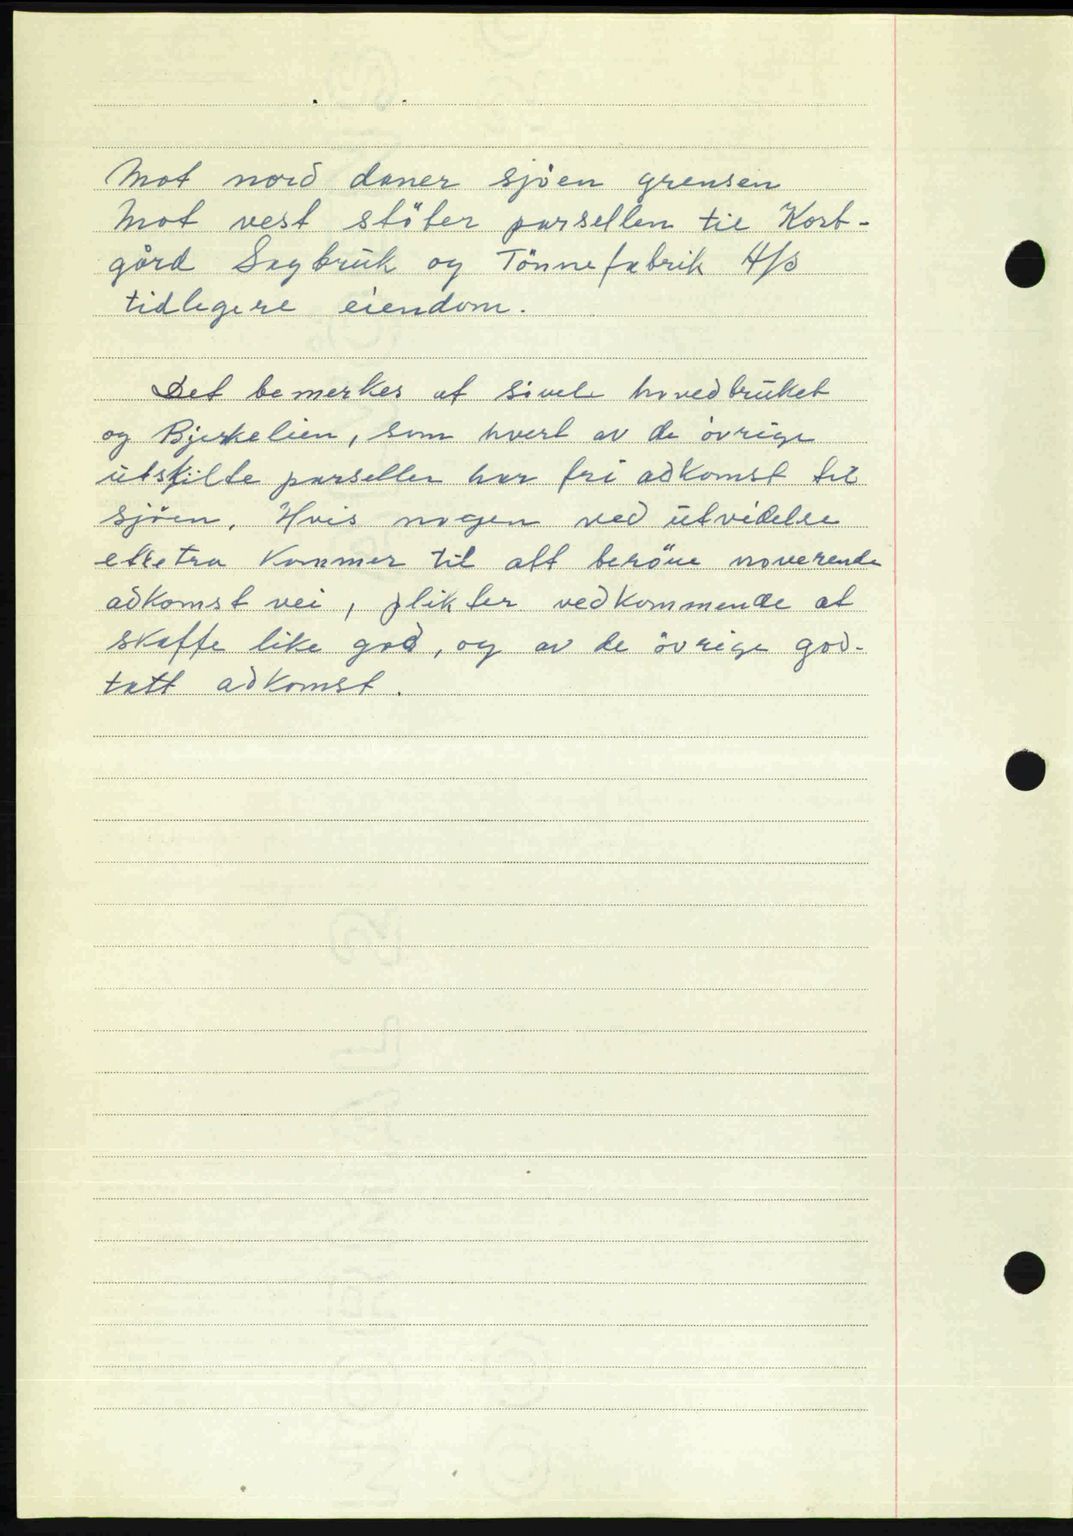 Mot nord daner sjöen grensen
Mot vest stöter parsellen til Kort-
gård Sagbruk og Tönnefabrik A/S
tidligere eiendom.
Det bemerkes at såvel hovedbruket
og Bjerkelien, som hvert av de övrige
utskilte parseller har fri adkomst til
sjöen. Hvis nogen ved utvidelse
etc etra kommer til att beröve noverende
adkomst vei, plikter vedkommende at
skaffe like god, og av de övrige god-
tatt adkomst.